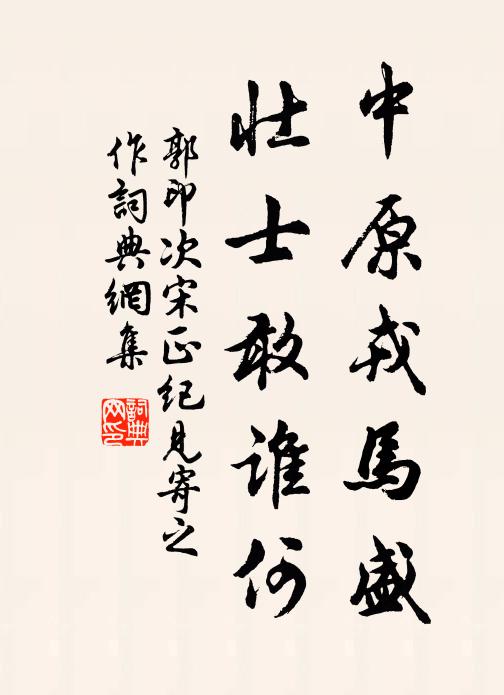 中原戎馬盛
壮士敢誰何
郭印次宋正紀見寄之
作詞典網集
詞典
网印